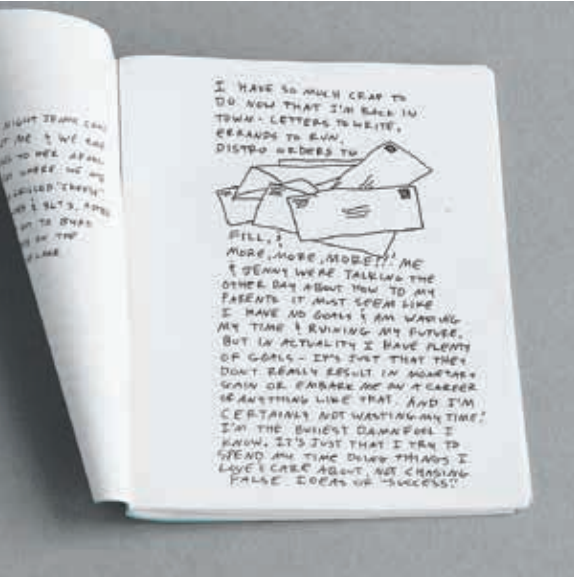 NIGHT JENNY CAME
ME & WE
TO HER
WHERE WE
GRILLED "CHEESE"
& BLTS. AFTER
TO
ON THE
LAKE.
I HAVE SO MUCH CRAP TO
DO NOW THAT I'M BACK IN
TOWN - LETTERS TO WRITE,
ERRANDS TO RUN,
DISTRO ORDERS TO
FILL, &
MORE, MORE, MORE!!! ME
& JENNY WERE TALKING THE
OTHER DAY ABOUT HOW TO MY
PARENTS IT MUST SEEM LIKE
I HAVE NO GOALS & AM WASTING
MY TIME & RUINING MY FUTURE.
BUT IN ACTUALITY I HAVE PLENTY
OF GOALS - IT'S JUST THAT THEY
DON'T REALLY RESULT IN MONETARY
GAIN OR EMBARK ME ON A CAREER
OR ANYTHING LIKE THAT. AND I'M
CERTAINLY NOT WASTING MY TIME!
I'M THE BUSIEST DAMN FOOL I
KNOW. IT'S JUST THAT I TRY TO
SPEND MY TIME DOING THINGS I
LOVE & CARE ABOUT, NOT CHASING
FALSE IDEAS OF "SUCCESS."